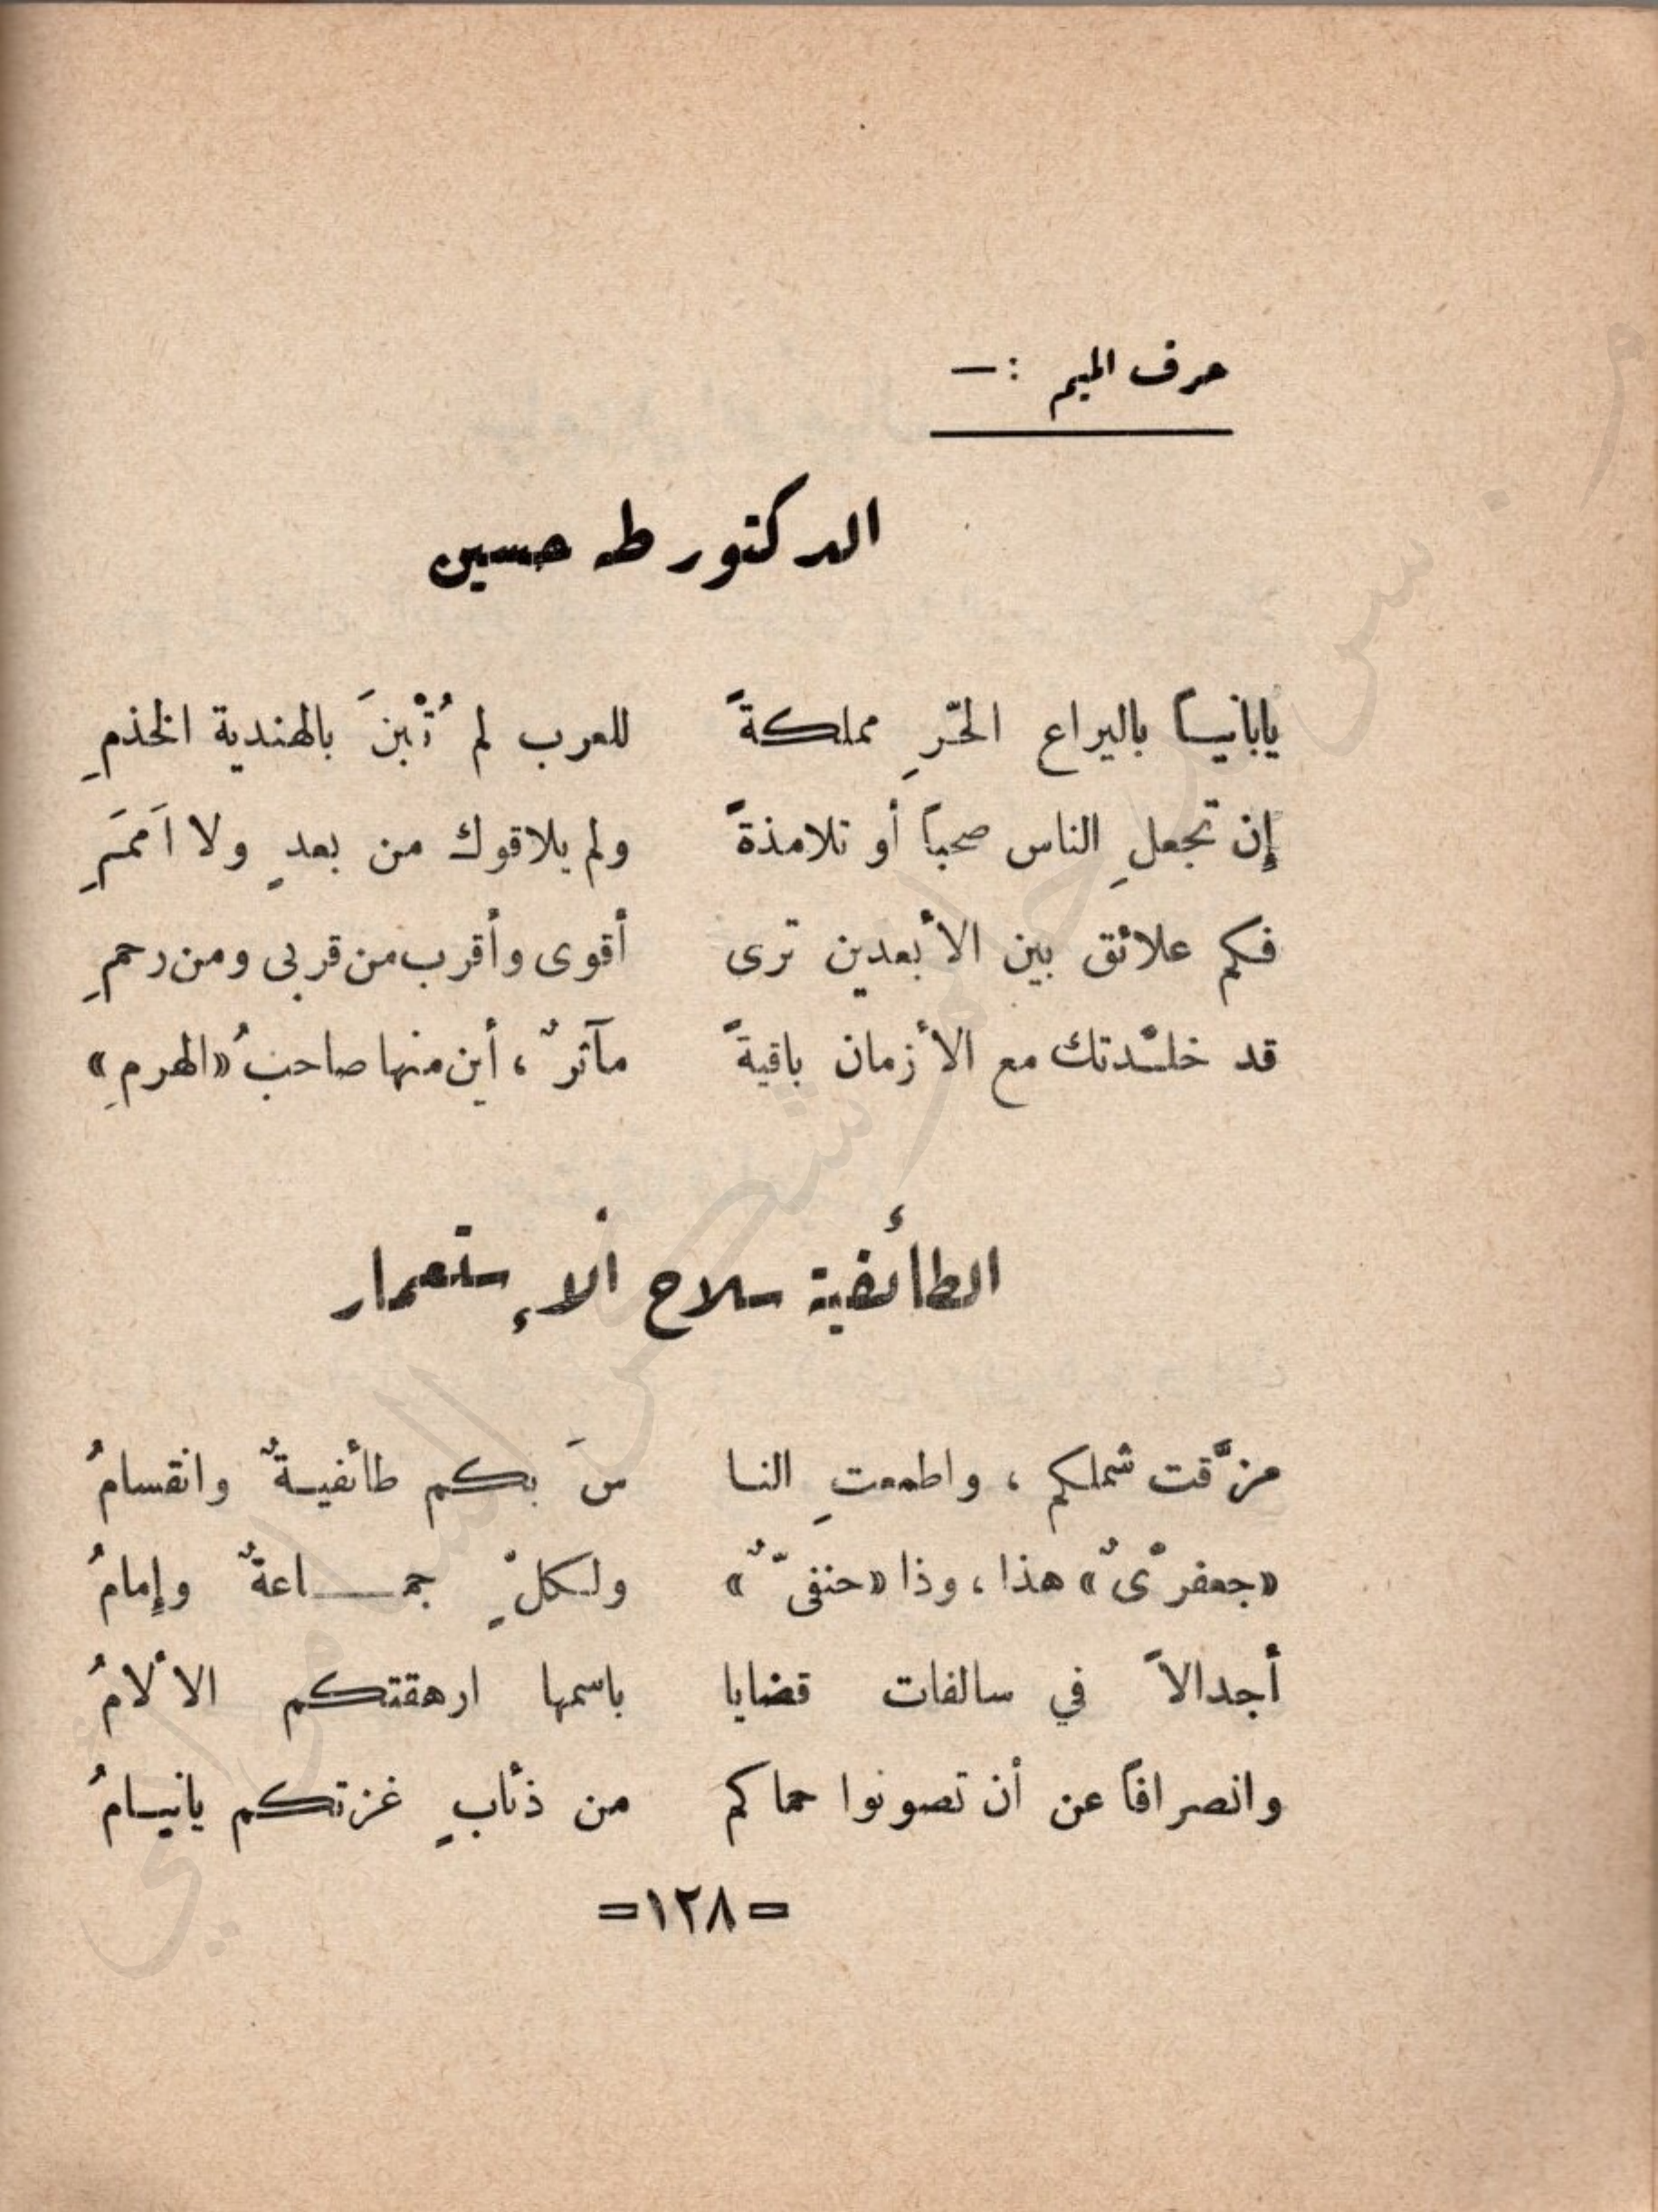 حرف الميم :ـ
الدكتور طه حسين
يابانيـاً باليراع الحّرِ مملكةً    للعرب لم تُبْنَ بالهندية الخذمِ
إن تجعلِ الناس صحباً أو تلامذةً    ولم يلاقوك من بعدٍ ولا اَممَرِ
فكم علائق بين الأبعدين ترى    أقوى وأقرب من قربى ومن رحمِ
قد خلّدتك مع الأزمان باقيةً    مآثرٌ ، أين منها صاحبُ «الهرمِ»
الطائفية سلاح ألاإستعمار
مزّقت شملكم ، واطمعتِ النـا    سَ بكم طائفيـةٌ وانقسامُ
«جعفرىٌ» هذا ، وذا «حنفىٌّ»    ولكلٍ جمـــاعةٌ وإمامُ
أجدالاً في سالفات قضايا    باسمها ارهقتكم الألامُ
وانصرافاً عن أن تصونوا حماكم    من ذئابٍ غزتكم يانيـامُ
=١٢٨=